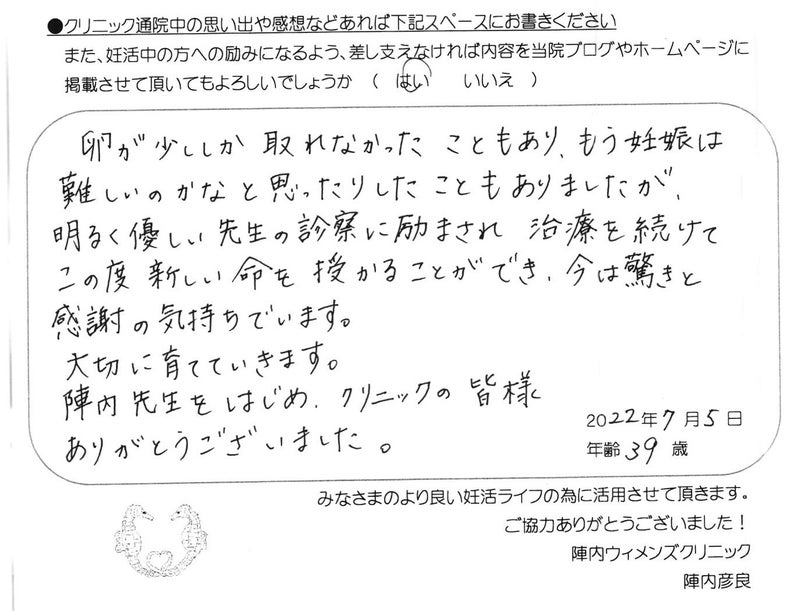 ●クリニック通院中の思い出や感想などあれば下記スペースにお書きください
また、妊活中の方への励みになるよう、差し支えなければ内容を当院ブログやホームページに
掲載させて頂いてもよろしいでしょうか （ はい いいえ ）
卵が少ししか 取れなかった こともあり、もう妊娠は
難しいのかな と思ったりした こともありましたが、
明るく優しい 先生の診察に励まされ 治療を続けて
この度 新しい 命を 授かることができ、今は驚きと
感謝の気持ちでいます。
大切に育てていきます。
陣内先生をはじめ、クリニックの 皆様
ありがとうございました。
2022年7月5日
年齢39歳
みなさまのより良い妊活ライフの為に活用させて頂きます。
ご協力ありがとうございました！
陣内ウィメンズクリニック
陣内彦良